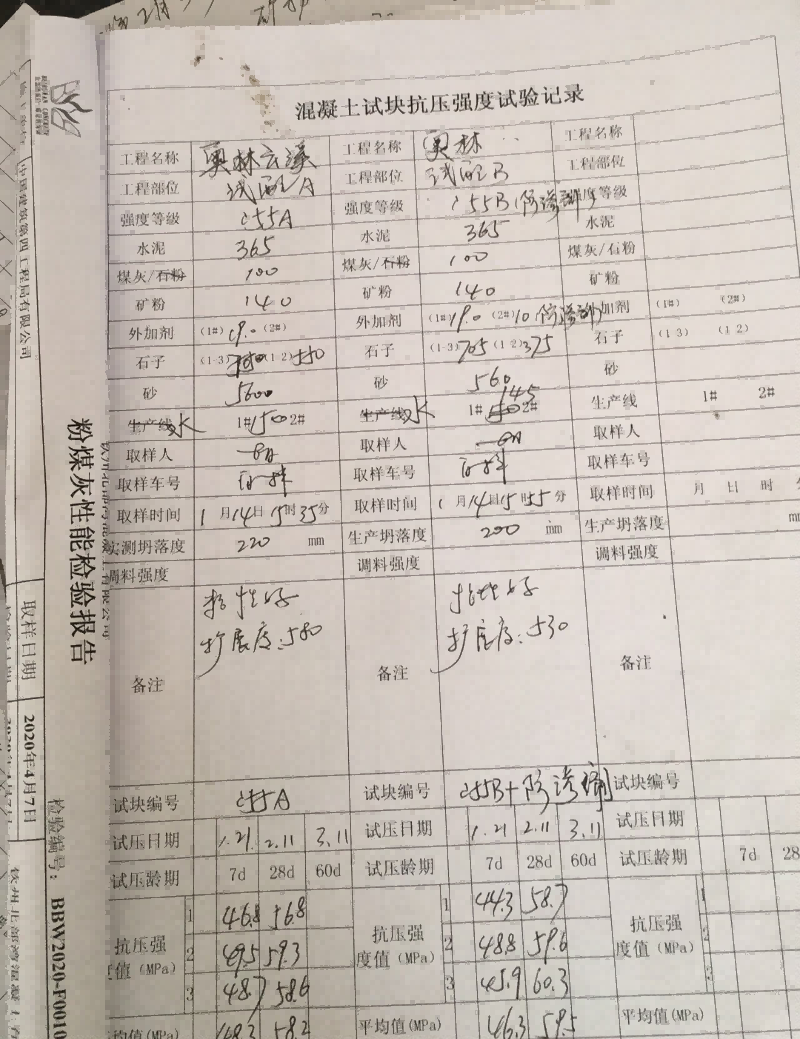 混凝土试块抗压强度试验记录
工程名称 奥林 工程名称 奥林 工程名称
工程部位 试配A 工程部位 试配B 工程部位
强度等级 C55A 强度等级 C55B(防渗 强度等级
水泥 365 水泥 365 水泥
煤灰/石粉 100 煤灰/石粉 100 煤灰/石粉
矿粉 140 矿粉 140 矿粉
外加剂 (1#) 19.0 (2#) 外加剂 (1#) 19.0 (2#) 10 防渗 外加剂 (1#) (2#)
石子 (1-3) (1-2) 550 石子 (1-3) 705 (1-2) 375 石子 (1-3) (1-2)
砂 5600 砂 560 砂
生产线 水 1# 150 2# 生产线 水 1# 145 2# 生产线 1# 2#
取样人 取样人 取样人
取样车号 取样车号 取样车号
取样时间 1月14日15时35分 取样时间 1月14日15时55分 取样时间 月 日 时
实测坍落度 220 mm 生产坍落度 200 mm 生产坍落度 mm
调料强度 调料强度 调料强度
备注 粘性好 备注 粘性好 备注
扩展度:580 扩展度:530
试块编号 C55A 试块编号 C55B+防渗 试块编号
试压日期 1.21 2.11 3.11 试压日期 1.21 2.11 3.11 试压日期
试压龄期 7d 28d 60d 试压龄期 7d 28d 60d 试压龄期 7d 28
抗压强度值(MPa) 1 46.8 56.8 抗压强度值(MPa) 1 44.3 58.7 抗压强度值(MPa) 1
2 49.5 59.3 2 48.8 59.6 2
3 48.7 58.6 3 45.9 60.3 3
平均值(MPa) 48.3 58.2 平均值(MPa) 46.3 59.5 平均值(MPa)
粉煤灰性能检验报告
中国建筑第四工程局有限公司
取样日期 2020年4月7日
检验编号: BBW2020-F0010
钦州北部湾混凝土有